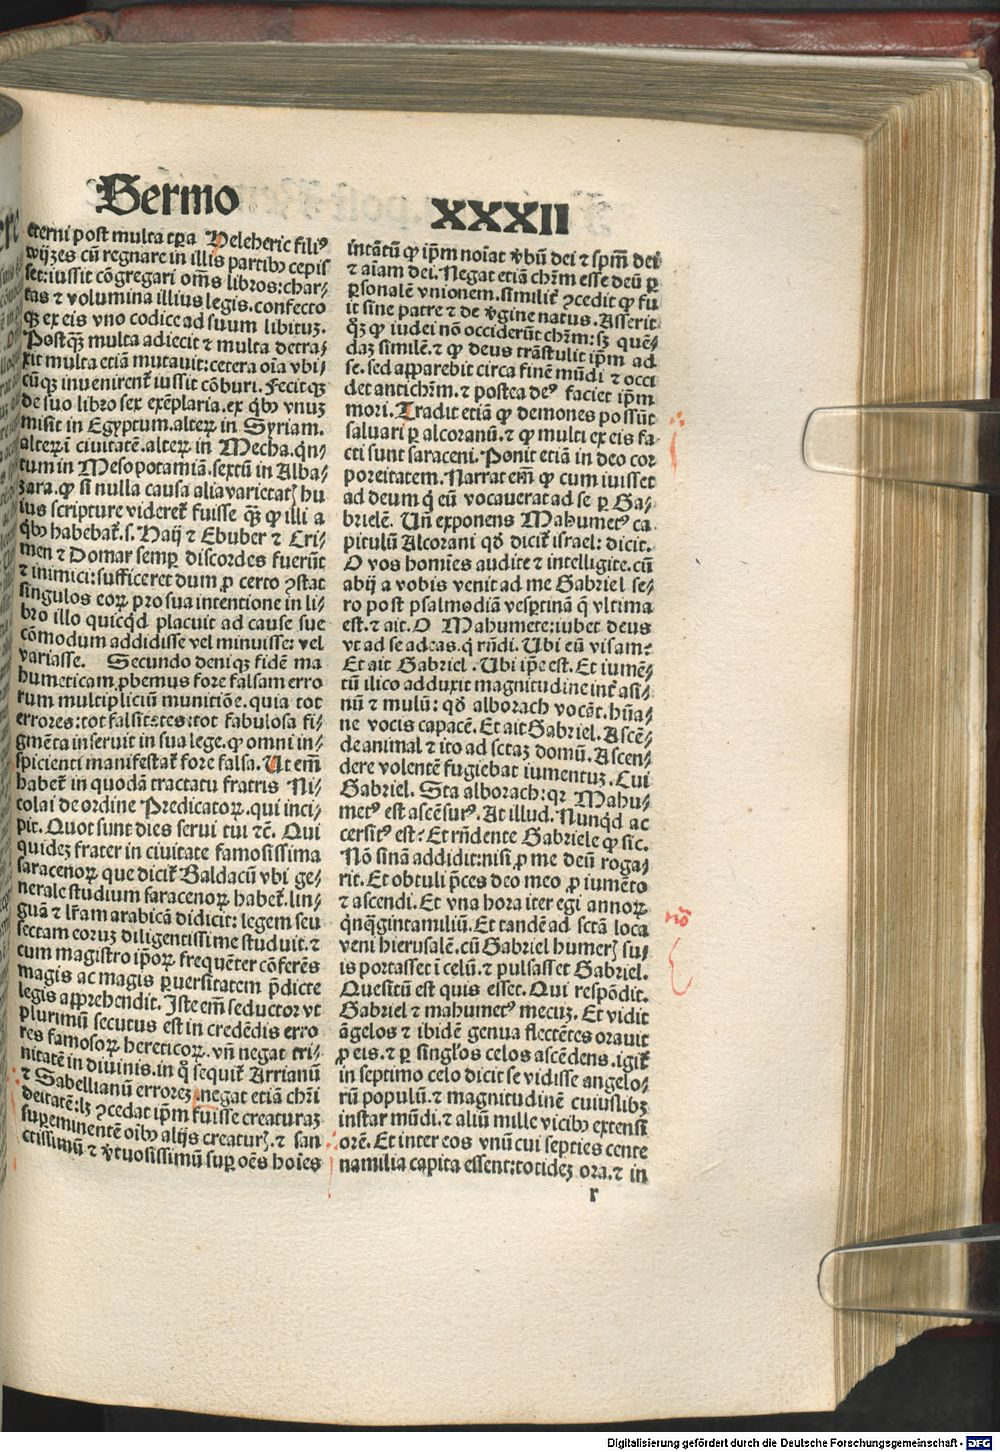 Sermo
XXXII
eterni post multa tꝑa Veleheric filiꝰ
wijzes cū regnare in illis partibꝰ cepis
set: iussit cōgregari om̄s libros: char⸗
tas ⁊ volumina illius legis. confecto
qꝫ ex eis vno codice ad suum libituꝫ.
Postq̄ꝫ multa adiecit ⁊ multa detra⸗
xit multa etiā mutauit: cetera oīa vbi⸗
cūqꝫ inuenirent̄ iussit cōburi. Fecitqꝫ
de suo libro sex exēplaria. ex q̇bꝰ vnuꝫ
misit in Egyptum. alteꝝ in Syriam.
alteꝝ ī ciuitatē. alteꝝ in Mecha. q̇n⸗
tum in Mesopotamiā. sextū in Alba⸗
zara. ꝙ si nulla causa alia varietatꝭ hu
ius scripture videret̄ fuisse q̄ꝫ ꝙ illi a
q̇bꝰ habebat̄. s. Naij ⁊ Ebuber ⁊ Cri⸗
men ⁊ Domar semꝑ discordes fuerūt
⁊ inimici: sufficeret dum ꝓ certo ꝯstat
singulos eoꝝ pro sua intentione in li⸗
bro illo quicq̇d placuit ad cause sue
cōmodum addidisse vel minuisse: vel
variasse. Secundo deniqꝫ fidē ma
humeticam ꝓbemus fore falsam erro
rum multipliciū munitiōe. quia tot
errores: tot falsitates: tot fabulosa fi⸗
gmēta inseruit in sua lege. ꝙ omni in⸗
spicienti manifestat̄ fore falsa. Ut em̄
habet̄ in quodā tractatu fratris Ni⸗
colai de ordine Predicatoꝝ. qui inci⸗
pit. Quot sunt dies serui tui ⁊c̄. Qui
quideꝫ frater in ciuitate famosissima
saracenoꝝ que dicit̄ Baldacū vbi ge⸗
nerale studium saracenoꝝ habet̄. lin⸗
guā ⁊ lr̄am arabicā didicit: legem seu
sectam eoruꝫ diligentissime studuit. ⁊
cum magistro ip̄oꝝ frequēter cōferēs
magis ac magis ꝑuersitatem p̄dicte
legis apprehendit. Iste em̄ seductor vt
plurimū secutus est in credēdis erro
res famosoꝝ hereticoꝝ. vn̄ negat tri⸗
nitatē in diuinis. in q̊ sequit̄ Arrianū
⁊ Sabellianū erroreꝫ. negat etiā chr̄i
deitatē: lꝫ ꝯcedat ip̄m fuisse creaturaꝫ
supereminentē oībꝰ alijs creaturꝭ. ⁊ san
ctissimū ⁊ v̓tuosissimū suꝑ oēs hoīes
intātū ꝙ ip̄m noīat v̓bū dei ⁊ spm̄ dei
⁊ aīam dei. Negat etiā chr̄m esse deū ꝑ
ꝑsonalē vnionem. similit̄ ꝯcedit ꝙ fu
it sine patre ⁊ de v̓gine natus. Asserit
q̊ꝫ ꝙ iudei nō occiderūt chr̄m: sꝫ quē⸗
daꝫ similē. ⁊ ꝙ deus trāstulit ip̄m ad
se. sed apparebit circa finē mūdi ⁊ occi
det antichr̄m. ⁊ postea deꝰ faciet ip̄m
mori. Tradit etiā ꝙ demones possūt
saluari ꝑ alcoranū. ⁊ ꝙ multi ex eis fa⸗
cti sunt saraceni. Ponit etiā in deo cor
poreitatem. Narrat em̄ ꝙ cum iuisset
ad deum q̇ eū vocauerat ad se ꝑ Ga⸗
brielē. Un̄ exponens Mahumetꝰ ca
pitulū Alcorani qd̊ dicit̄ israel: dicit.
O vos homīes audite ⁊ intelligite. cū
abij a vobis venit ad me Gabriel se⸗
ro post psalmodiā vesꝑtinā q̄ vltima
est. ⁊ ait. O Mahumete: iubet deus
vt ad se adeas. q̇ rn̄di. Ubi eū visam?
Et ait Gabriel. Ubi ip̄e est. Et iumē⸗
tū ilico adduxit magnitudine int̄ asi⸗
nū ⁊ mulū: qd̊ alborach vocāt. hūa⸗
ne vocis capacē. Et ait Gabriel. Ascē⸗
de animal ⁊ ito ad sctāꝫ domū. Ascen⸗
dere volentē fugiebat iumentuꝫ. Cui
Gabriel. Sta alborach: qꝛ Mahu⸗
metꝰ est ascēsurꝰ. At illud. Nunq̇d ac
cersitꝰ est? Et rn̄dente Gabriele ꝙ sic.
Nō sinā addidit: nisi ꝓ me deū roga⸗
rit. Et obtuli p̄ces deo meo ꝓ iumēto
⁊ ascendi. Et vna hora iter egi annoꝝ
q̇nq̄gintamiliū. Et tandē ad sctā loca
veni hierusalē. cū Gabriel humerꝭ su⸗
is portasset ī celū. ⁊ pulsasset Gabriel.
Quesitū est quis esset. Qui respōdit.
Gabriel ⁊ mahumetꝰ mecuꝫ. Et vidit
āgelos ⁊ ibidē genua flectētes orauit
ꝓ eis. ⁊ ꝑ singl'os celos ascēdens. igit̄
in septimo celo dicit se vidisse angelo⸗
rū populū. ⁊ magnitudinē cuiuslibꝫ
instar mūdi. ⁊ aliū mille vicibꝰ extensi
orē. Et inter eos vnū cui septies cente
namilia capita essent: totideꝫ ora. ⁊ in
r
nō
Digitalisierung gefördert durch die Deutsche Forschungsgemeinschaft - DFG